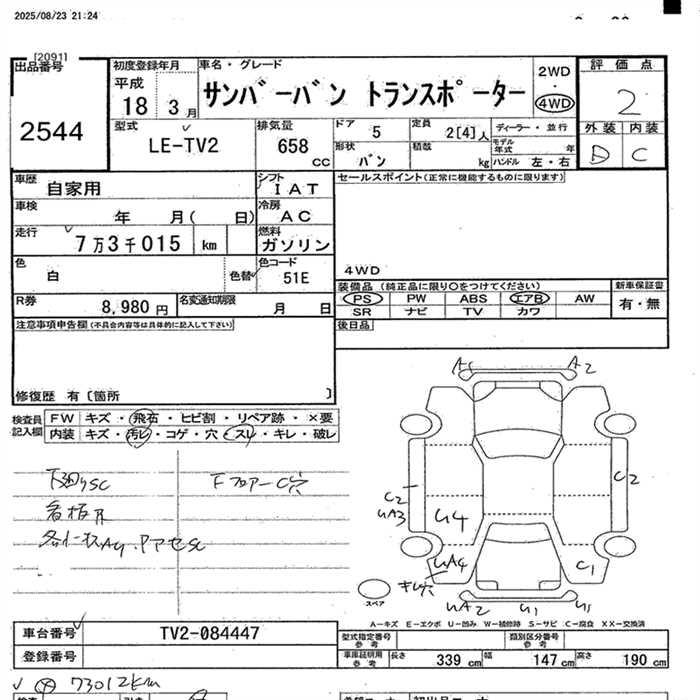 2025/08/23 21:24
[2091]
出品番号
2544
初度登録年月
平成
18 3 月
車名・グレード
サンバーバン トランスポーター
2WD
4WD
評価点
2
外装 内装
D C
型式
LE-TV2
排気量
658 cc
ドア 5
形状 バン
定員 2[4]人
積載 kg
ディーラー・並行
モデル年式 年
ハンドル 左・右
車歴 自家用
シフト IAT
車検 年 月( 日)
冷房 AC
走行 7万3千015 km
燃料 ガソリン
色 白
色替
色コード 51E
R券 8,980 円
名変通知期限 月 日
セールスポイント(正常に機能するものに限ります)
4WD
装備品(純正品に限り○をつけてください)
PS PW ABS エアB AW
SR ナビ TV カワ
新車保証書
有・無
後日品
注意事項申告欄(不具合内容等は具体的に記入して下さい)
修復歴 有〔箇所 〕
検査員記入欄
FW キズ・飛石・ヒビ割・リペア跡・×要
内装 キズ・汚レ・コゲ・穴・スレ・キレ・破レ
下廻りSC
Fフロアー C穴
A2
C2
UA3
U4
UA4
キレ穴
C2
C1
UA2
U1
U1
スペア
A-キズ E-エクボ U-凹み W-補修跡 S-サビ C-腐食 XX-交換済
車台番号 TV2-084447
登録番号
型式指定番号 参考
類別区分番号 参考
車庫証明用 参考
長さ 339 cm
幅 147 cm
高さ 190 cm
73012km